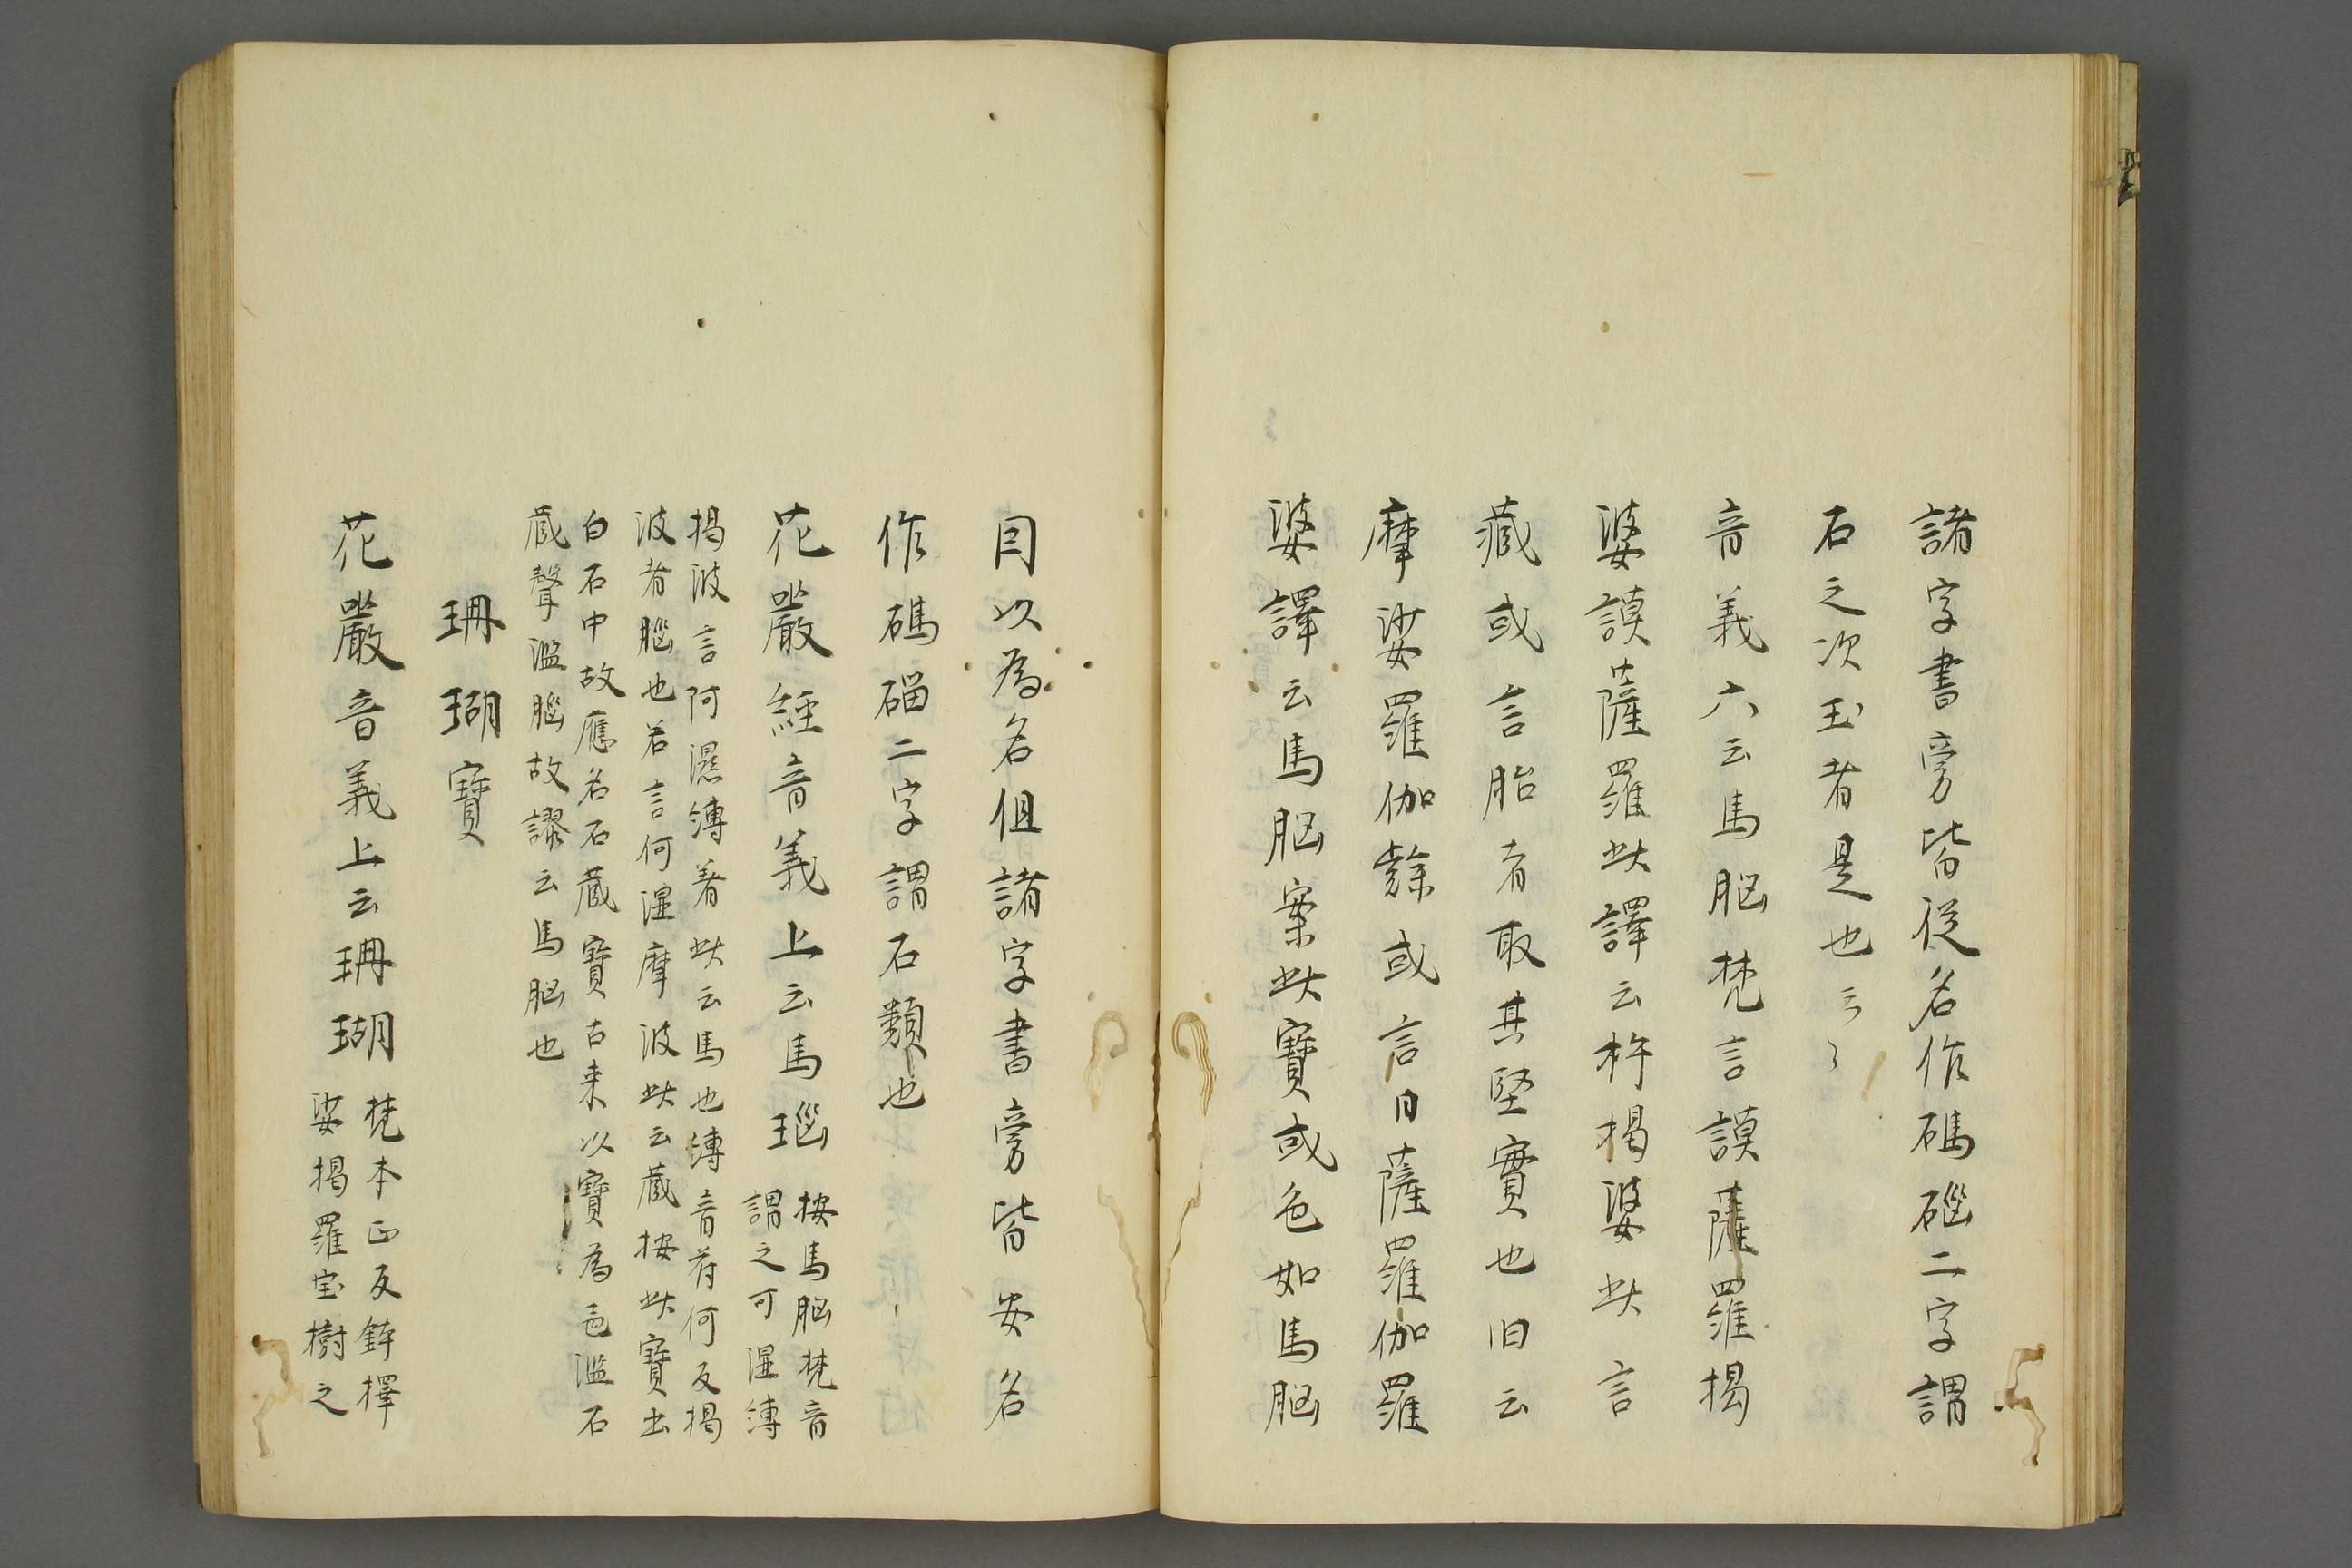 諸字書旁皆從名作碼碯二字謂
石之次玉者是也云々
音義六云馬脳梵言謨薩羅揭
婆謨薩羅此譯云杵揭婆此言
藏或言胎者取其堅實也旧云
摩娑羅伽隸或言曰薩羅伽羅
婆譯云馬脳案此寶或色如馬脳
因以為名但諸字書旁皆安名
作碼碯二字謂石類也
花嚴經音義上云馬瑙
按馬脳梵音
謂之可溼縳
揭波言阿濕縳着此云馬也縳音苻何反揭
波者腦也若言何溼摩波此云藏按此寶出
白石中故應名石藏寶古来以寶為色濫石
藏聲濫腦故謬云馬脳也
珊瑚寶
花嚴音義上云珊瑚
梵本正反釬擇
娑揭羅宝樹之